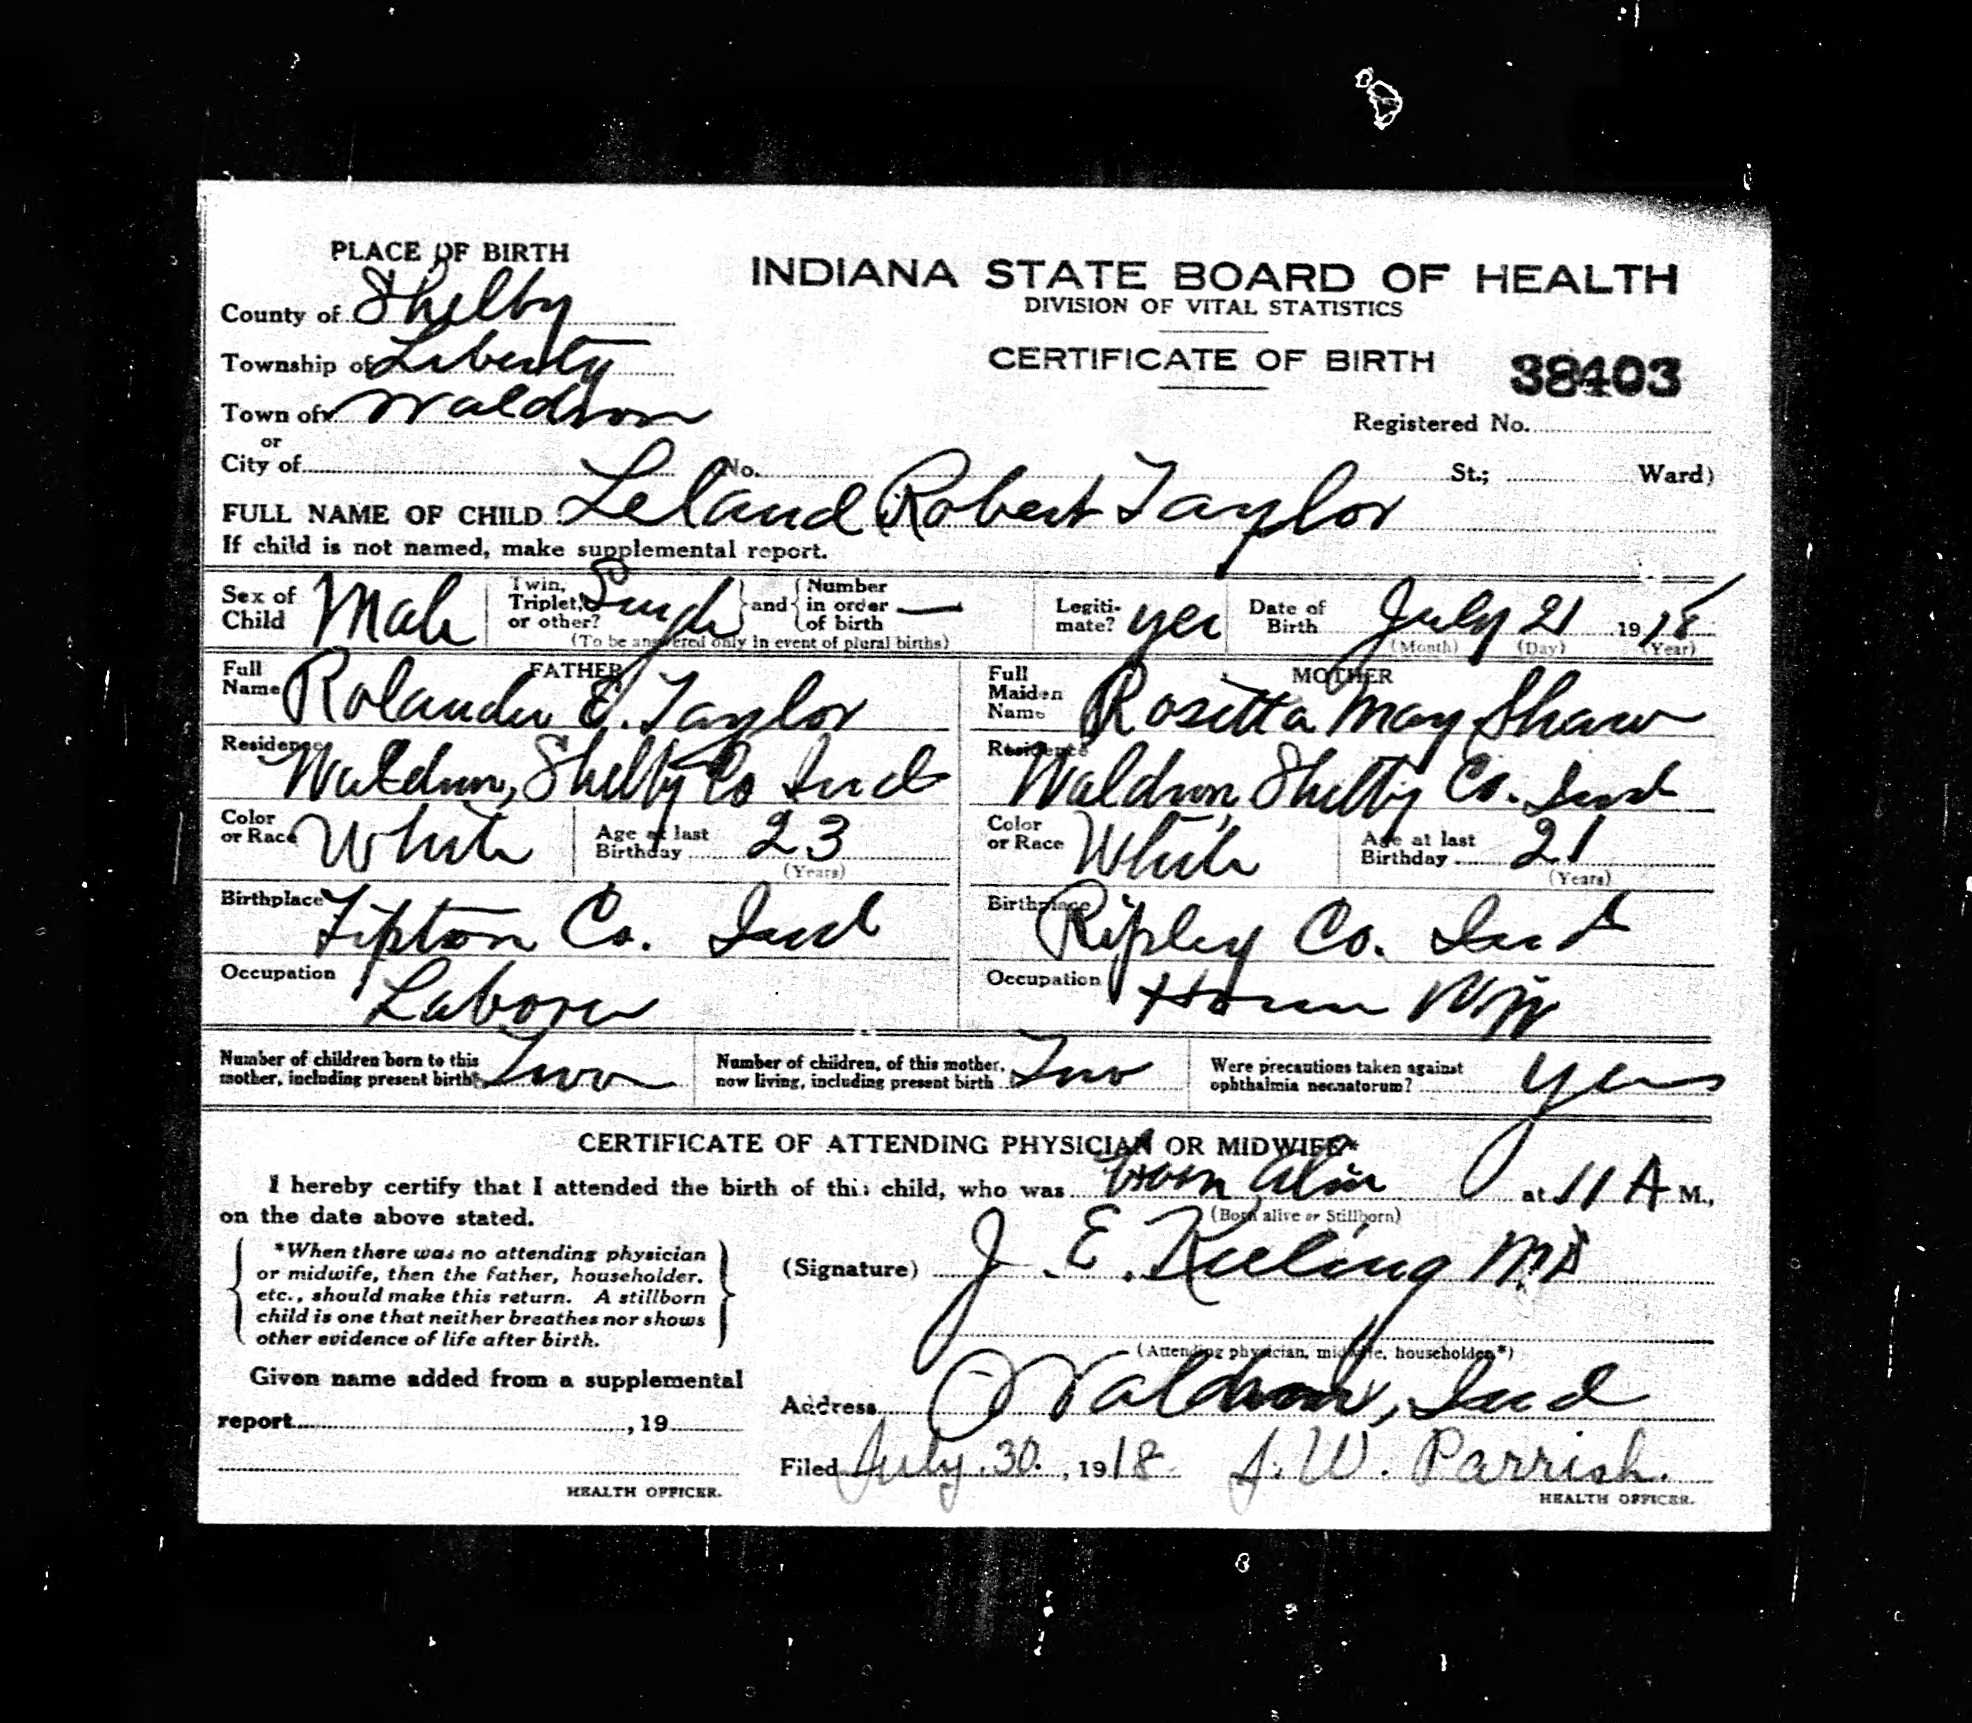 PLACE OF BIRTH
INDIANA STATE BOARD OF HEALTH
DIVISION OF VITAL STATISTICS
County of Shelby
Township of Liberty
CERTIFICATE OF BIRTH 38403
Town of Waldron
Registered No.
or
City of No. St.; Ward)
FULL NAME OF CHILD Leland Robert Taylor
If child is not named, make supplemental report.
Sex of Child Male
Twin, Triplet, or other? Single and Number in order of birth —
(To be answered only in event of plural births)
Legiti- mate? yes
Date of Birth July 21 1918
(Month) (Day) (Year)
FATHER
Full Name E. Taylor
Residence Waldron, Shelby Co Ind
Color or Race White
Age at last Birthday 23
(Years)
Birthplace Tipton Co. Ind
Occupation Laborer
MOTHER
Full Maiden Name Rosetta May Shaw
Residence Waldron, Shelby Co. Ind
Color or Race White
Age at last Birthday 21
(Years)
Birthplace Ripley Co. Ind
Occupation House Wife
Number of children born to this mother, including present birth Two
Number of children, of this mother, now living, including present birth Two
Were precautions taken against ophthalmia neonatorum? yes
CERTIFICATE OF ATTENDING PHYSICIAN OR MIDWIFE*
I hereby certify that I attended the birth of this child, who was Born Alive at 11 A M.,
(Born alive or Stillborn)
on the date above stated.
*When there was no attending physician
or midwife, then the father, householder,
etc., should make this return. A stillborn
child is one that neither breathes nor shows
other evidence of life after birth.
(Signature) J. E. Keeling MD
(Attending physician, midwife, householder*)
Given name added from a supplemental
report , 19
HEALTH OFFICER.
Address Waldron, Ind
Filed July. 30. , 1918 W. Parrish.
HEALTH OFFICER.